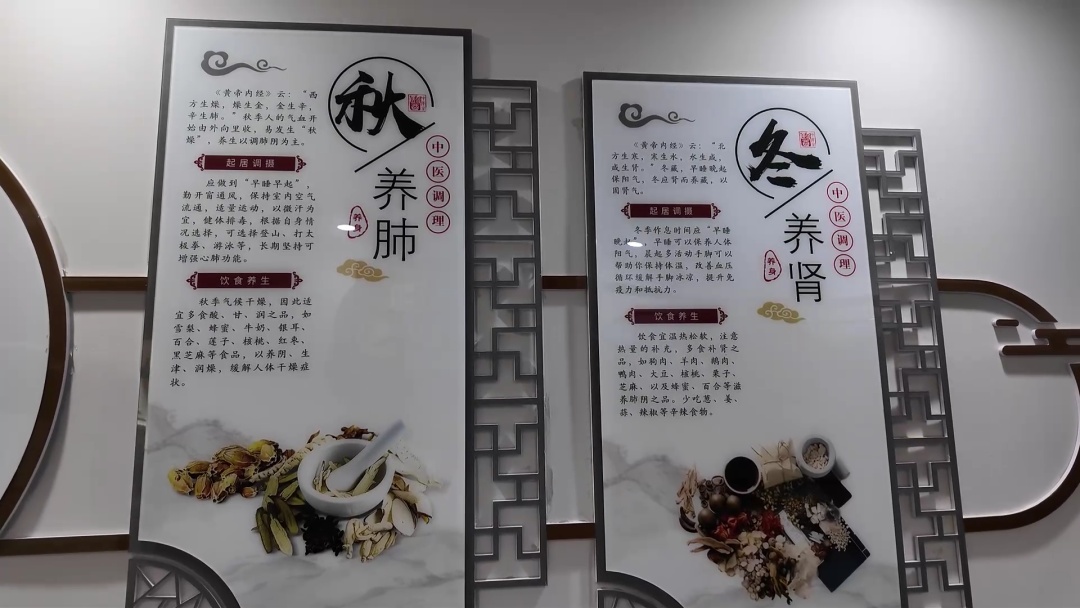 《黄帝内经》云：“西
方生燥，燥生金，金生辛，
辛生肺。”秋季人的气血开
始由外向里收，易发生“秋
燥”，养生以调肺阴为主。
起居调摄
应做到“早睡早起”，
勤开窗通风，保持室内空气
流通，适量运动，以微汗为
宜，健体排毒，根据自身情
况选择，可选择登山、打太
极拳、游泳等，长期坚持可
增强心肺功能。
饮食养生
秋季气候干燥，因此适
宜多食酸、甘、润之品，如
雪梨、蜂蜜、牛奶、银耳、
百合、莲子、核桃、红枣、
黑芝麻等食品，以养阴、生
津、润燥，缓解人体干燥症
状。
秋
养肺
中医调理
养身
《黄帝内经》云：“北
方生寒，寒生水，水生咸，
咸生肾。”冬藏，早睡晚起
保阳气。冬应肾而养藏，以
固肾气。
起居调摄
冬季作息时间应“早睡
晚起”，早睡可以保养人体
阳气，晨起多活动手脚可以
帮助你保持体温，改善血压
循环缓解手脚冰凉，提升免
疫力和抵抗力。
饮食养生
饮食宜温热松软，注意
热量的补充，多食补肾之
品，如狗肉、羊肉、鹅肉、
鸭肉、大豆、核桃、栗子、
芝麻、以及蜂蜜、百合等滋
养肺阴之品。少吃葱、姜、
蒜、辣椒等辛辣食物。
冬
养肾
中医调理
养身